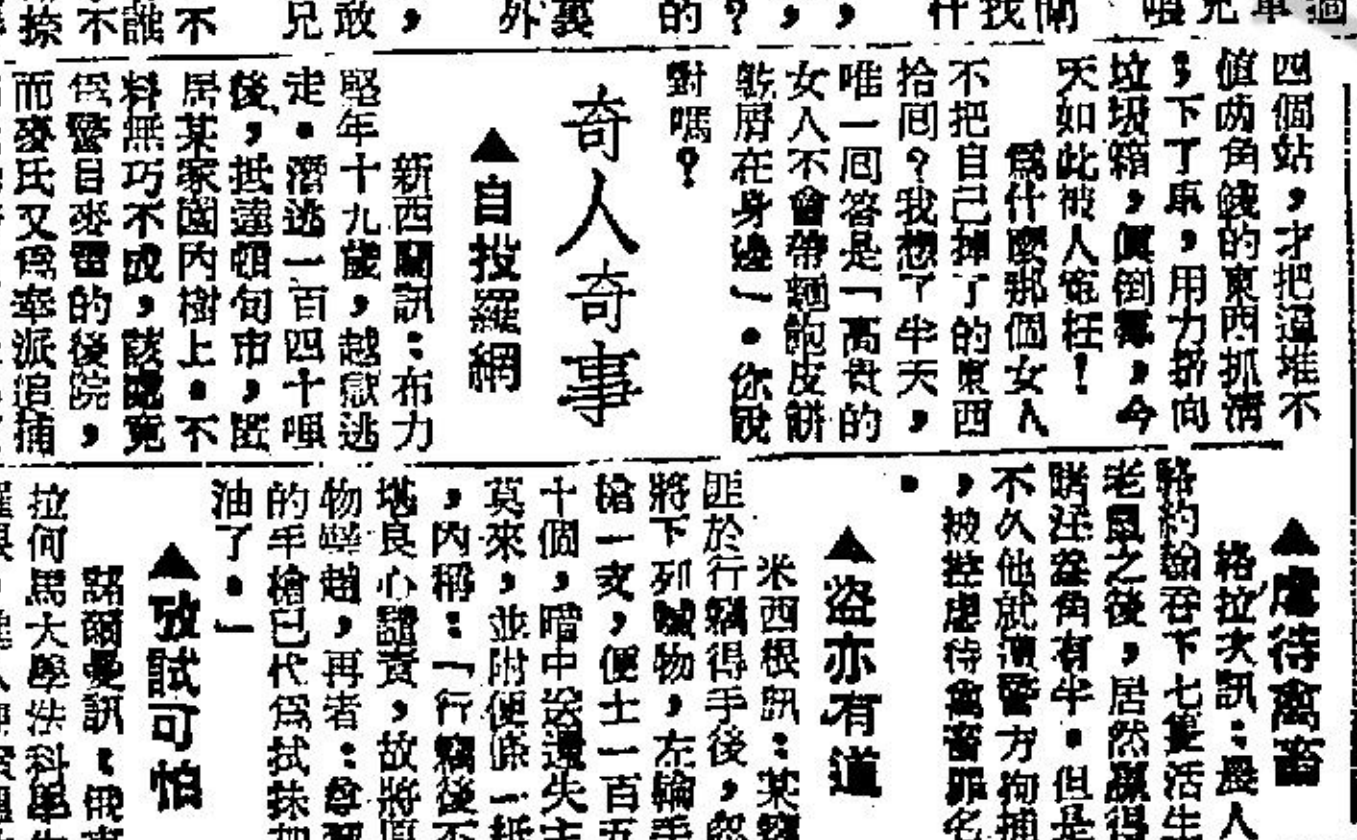 四個站，才把這堆不
值兩角錢的東西抓清
，下了車，用力擲向
垃圾箱，眞倒霉，今
天如此被人寃枉！
爲什麼那個女人
不把自己掉了的東西
拾囘？我想了半天，
唯一囘答是「高貴的
女人不會帶麵飽皮餅
乾屑在身邊」。你說
對嗎？
奇人奇事
▲自投羅網
新西蘭訊：布力
堅年十九歲，越獄逃
走。潛逃一百四十哩
後，抵達頓旬市，匿
居某家園內樹上。不
料無巧不成，該處竟
爲警目麥雷的後院，
而麥氏又爲奉派追捕
▲虐待禽畜
格拉夫訊：農人
約翰吞下七隻活生
老鼠之後，居然贏得
賭注壹角有半。但是
不久他就被警方拘捕
，被控虐待禽畜罪名
。
▲盜亦有道
米西根訊：某竊
匪於行竊得手後，
將下列贓物，左輪手
槍一支，便士一百五
十個，暗中送還失主
莫來，並附便條一紙
，內稱：「行竊後不
堪良心譴責，故將原
物璧趙，再者：尊
的手槍已代爲拭抹加
油了。」
▲攷試可怕
諾爾曼訊：俄
拉何馬大學法科學生